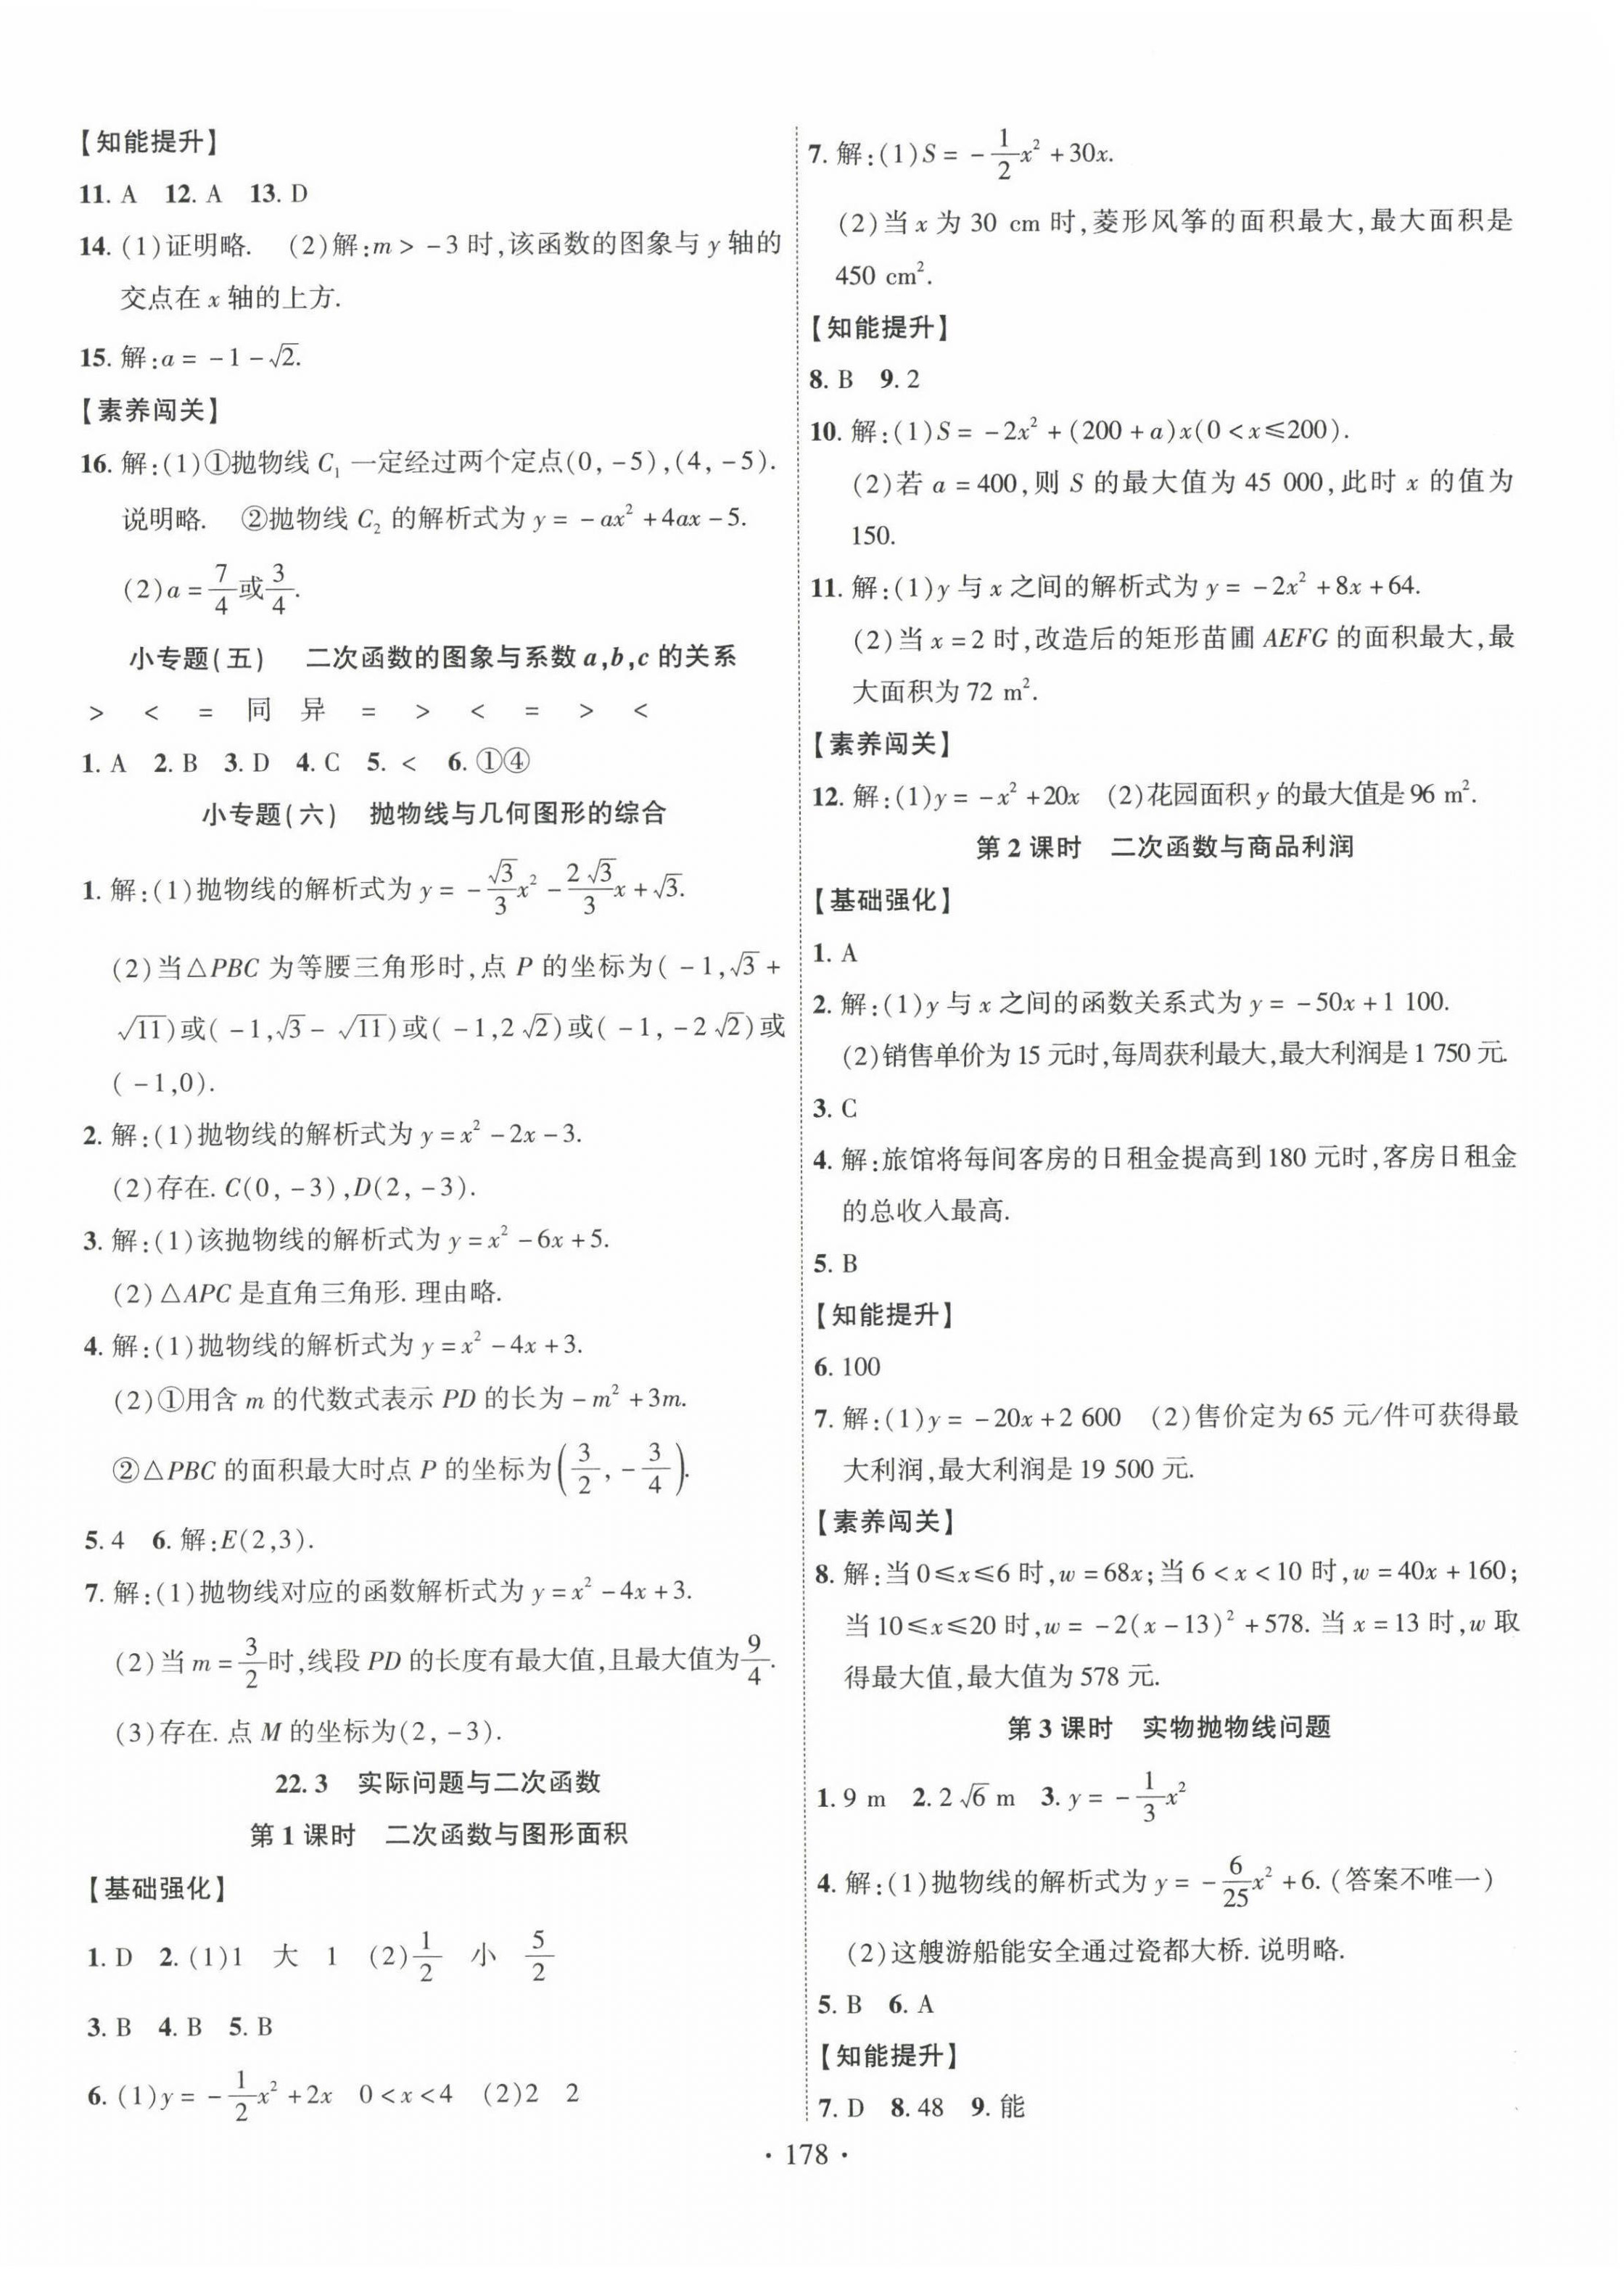 【知能提升】
11. A 12. A 13. D
14. (1)证明略. (2)解:m > -3 时,该函数的图象与 y 轴的
交点在 x 轴的上方.
15. 解:a = -1 - √2.
【素养闯关】
16. 解:(1)①抛物线 C₁ 一定经过两个定点(0, -5),(4, -5).
说明略. ②抛物线 C₂ 的解析式为 y = -ax² + 4ax - 5.
(2)a = 7/4 或 3/4.
小专题(五) 二次函数的图象与系数 a,b,c 的关系
> < = 同 异 = > < = > <
1. A 2. B 3. D 4. C 5. < 6. ①④
小专题(六) 抛物线与几何图形的综合
1. 解:(1)抛物线的解析式为 y = -√3/3 x² - 2√3/3 x + √3.
(2)当△PBC 为等腰三角形时,点 P 的坐标为( -1,√3 +
√11)或( -1,√3 - √11)或( -1,2√2)或( -1, -2√2)或
( -1,0).
2. 解:(1)抛物线的解析式为 y = x² - 2x - 3.
(2)存在. C(0, -3),D(2, -3).
3. 解:(1)该抛物线的解析式为 y = x² - 6x + 5.
(2)△APC 是直角三角形. 理由略.
4. 解:(1)抛物线的解析式为 y = x² - 4x + 3.
(2)①用含 m 的代数式表示 PD 的长为 -m² + 3m.
②△PBC 的面积最大时点 P 的坐标为(3/2, -3/4).
5. 4 6. 解:E(2,3).
7. 解:(1)抛物线对应的函数解析式为 y = x² - 4x + 3.
(2)当 m = 3/2 时,线段 PD 的长度有最大值,且最大值为 9/4.
(3)存在. 点 M 的坐标为(2, -3).
22.3 实际问题与二次函数
第 1 课时 二次函数与图形面积
【基础强化】
1. D 2. (1)1 大 1 (2)1/2 小 5/2
3. B 4. B 5. B
6. (1)y = -1/2 x² + 2x 0 < x < 4 (2)2 2
7. 解:(1)S = -1/2 x² + 30x.
(2)当 x 为 30 cm 时,菱形风筝的面积最大,最大面积是
450 cm².
【知能提升】
8. B 9. 2
10. 解:(1)S = -2x² + (200 + a)x(0 < x ≤ 200).
(2)若 a = 400,则 S 的最大值为 45 000,此时 x 的值为
150.
11. 解:(1)y 与 x 之间的解析式为 y = -2x² + 8x + 64.
(2)当 x = 2 时,改造后的矩形苗圃 AEFG 的面积最大,最
大面积为 72 m².
【素养闯关】
12. 解:(1)y = -x² + 20x (2)花园面积 y 的最大值是 96 m².
第 2 课时 二次函数与商品利润
【基础强化】
1. A
2. 解:(1)y 与 x 之间的函数关系式为 y = -50x + 1 100.
(2)销售单价为 15 元时,每周获利最大,最大利润是 1 750 元.
3. C
4. 解:旅馆将每间客房的日租金提高到 180 元时,客房日租金
的总收入最高.
5. B
【知能提升】
6. 100
7. 解:(1)y = -20x + 2 600 (2)售价定为 65 元/件可获得最
大利润,最大利润是 19 500 元.
【素养闯关】
8. 解:当 0 ≤ x ≤ 6 时,w = 68x;当 6 < x < 10 时,w = 40x + 160;
当 10 ≤ x ≤ 20 时,w = -2(x - 13)² + 578. 当 x = 13 时,w 取
得最大值,最大值为 578 元.
第 3 课时 实物抛物线问题
1. 9 m 2. 2√6 m 3. y = -1/3 x²
4. 解:(1)抛物线的解析式为 y = -6/25 x² + 6. (答案不唯一)
(2)这艘游船能安全通过瓷都大桥. 说明略.
5. B 6. A
【知能提升】
7. D 8. 48 9. 能
· 178 ·